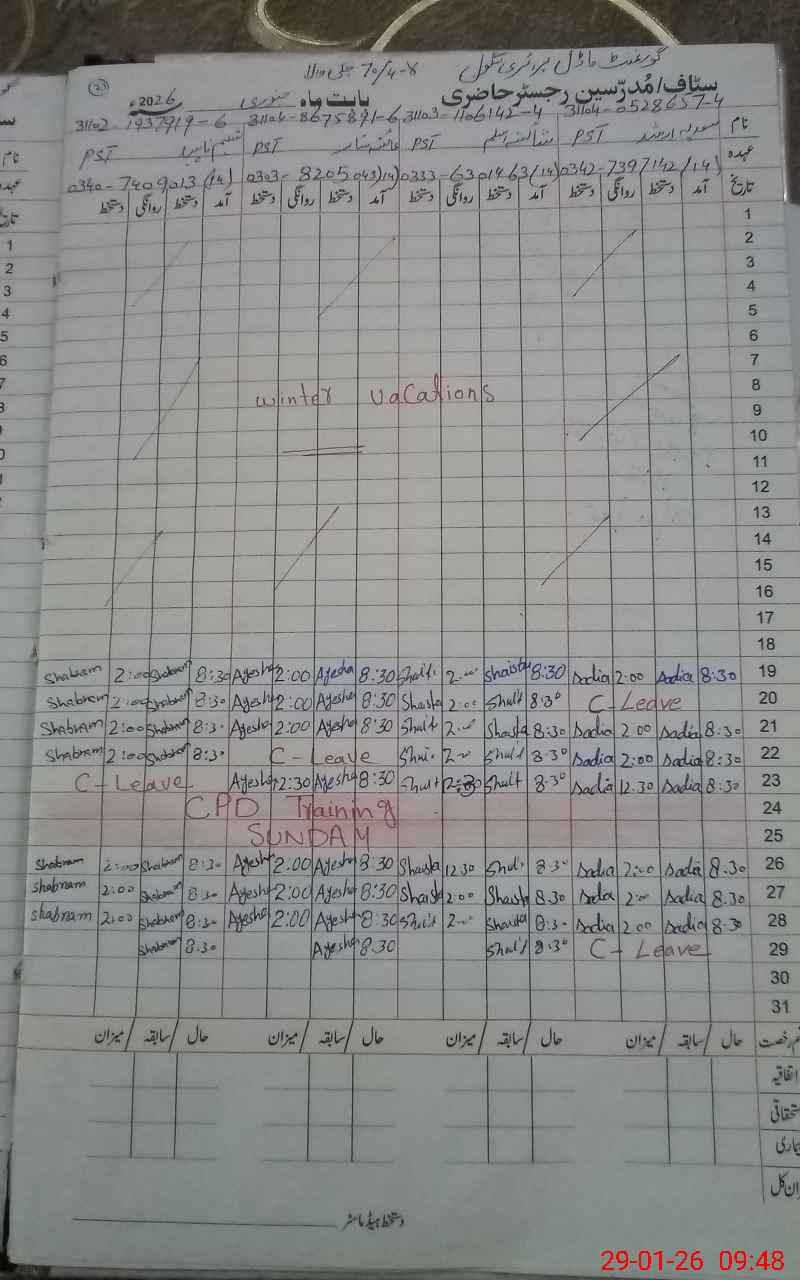 گورنمنٹ ماڈل پرائمری سکول 70/4-R
سٹاف/مُدرّسین رجسٹر حاضری بابت ماہ جنوری 2026ء
23
نام 31104-0528657-4 31103-1106142-4 31104-8675891-6 31102-1937919-6
عہدہ PST PST PST PST
0342-7397142(14) 0333-6301463(14) 0303-8205043(14) 0340-7409013(14)
تاریخ آمد دستخط روانگی دستخط آمد دستخط روانگی دستخط آمد دستخط روانگی دستخط آمد دستخط روانگی دستخط
1
2
3
4
5
6
7
winter vacations 8
9
10
11
12
13
14
15
16
17
18
Shabnam 2:00 Shabnam 8:30 Ayesha 2:00 Ayesha 8:30 2:00 Shaista 8:30 Sadia 2:00 Sadia 8:30 19
Shabnam 2:00 Shabnam 8:30 Ayesha 2:00 Ayesha 8:30 Shaista 2:00 8:30 C-Leave 20
Shabnam 2:00 Shabnam 8:30 Ayesha 2:00 Ayesha 8:30 2:00 Shaista 8:30 Sadia 2:00 Sadia 8:30 21
Shabnam 2:00 Shabnam 8:30 C-Leave 2:00 8:30 Sadia 2:00 Sadia 8:30 22
C-Leave Ayesha 12:30 Ayesha 8:30 12:30 8:30 Sadia 12.30 Sadia 8:30 23
CPD Training 24
SUNDAY 25
Shabnam 2:00 Shabnam 8:30 Ayesha 2:00 Ayesha 8:30 Shaista 12.30 8:30 Sadia 2:00 Sadia 8.30 26
Shabnam 2:00 Shabnam 8:30 Ayesha 2:00 Ayesha 8:30 Shaista 2:00 Shaista 8.30 Sadia 2:00 Sadia 8.30 27
Shabnam 2:00 Shabnam 8:30 Ayesha 2:00 Ayesha 8:30 2:00 Shaista 8:30 Sadia 2:00 Sadia 8:30 28
Shabnam 8:30 Ayesha 8.30 8:30 C-Leave 29
30
31
حال سابقہ میزان حال سابقہ میزان حال سابقہ میزان حال سابقہ میزان
اتفاقیہ
دستخط ہیڈ ماسٹر
29-01-26 09:48